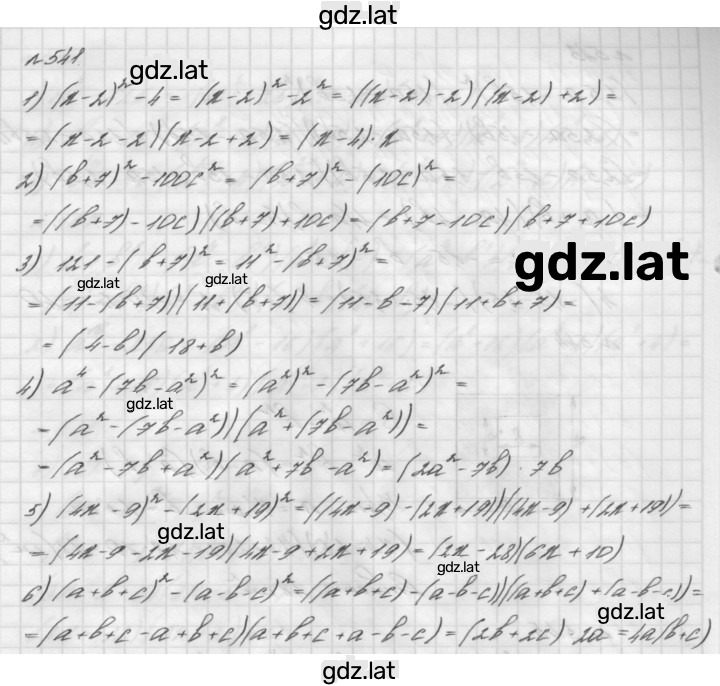 gdz.lat
n 541
gdz.lat
1) (x-2)² - 4 = (x-2)² - 2² = ((x-2) - 2)((x-2) + 2) =
= (x-2-2)(x-2+2) = (x-4)·x
2) (b+7)² - 100c² = (b+7)² - (10c)² =
= ((b+7) - 10c)((b+7) + 10c) = (b+7-10c)(b+7+10c)
3) 121 - (b+7)² = 11² - (b+7)² =
gdz.lat
gdz.lat
gdz.lat
= (11 - (b+7))(11 + (b+7)) = (11-b-7)(11+b+7) =
= (4-b)(18+b)
4) a⁴ - (7b-a²)² = (a²)² - (7b-a²)² =
gdz.lat
- (a² - (7b-a²))(a² + (7b-a²)) =
- (a² - 7b + a²)(a² + 7b - a²) = (2a² - 7b) · 7b
5) (4x-9)² - (2x+19)² = ((4x-9) - (2x+19))((4x-9) + (2x+19)) =
gdz.lat
= (4x-9-2x-19)(4x-9+2x+19) = (2x-28)(6x+10)
gdz.lat
6) (a+b+c)² - (a-b-c)² = ((a+b+c) - (a-b-c))((a+b+c) + (a-b-c)) =
gdz.lat
= (a+b+c-a+b+c)(a+b+c+a-b-c) = (2b+2c) · 2a = 4a(b+c)
gdz.lat